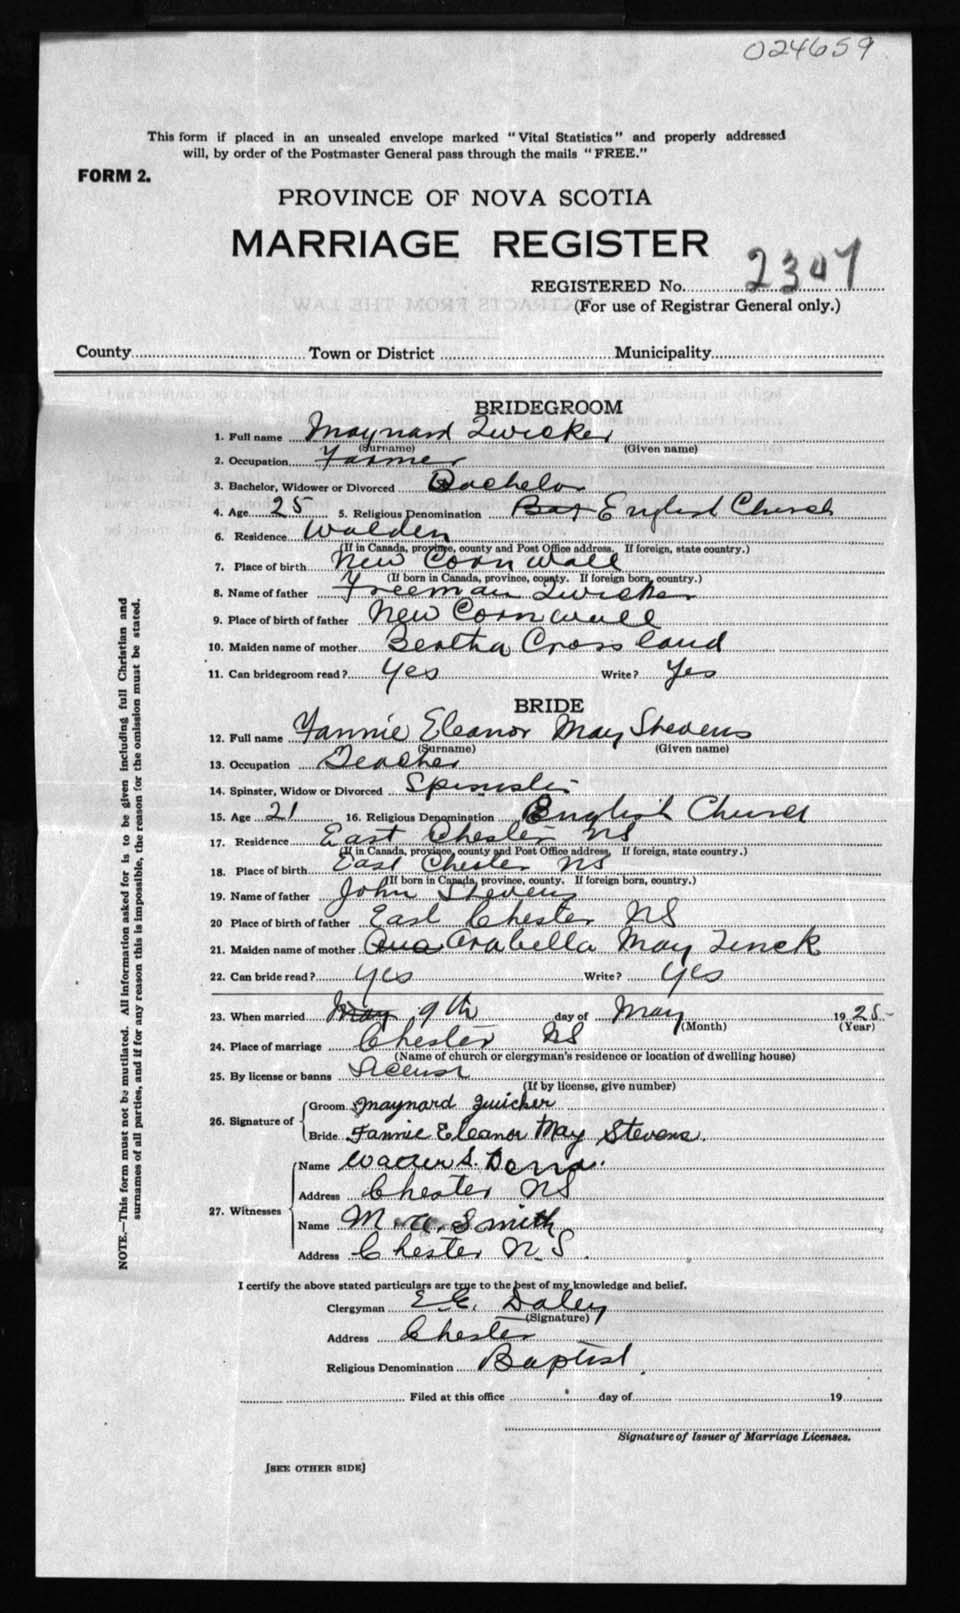 024659
This form if placed in an unsealed envelope marked "Vital Statistics" and properly addressed
will, by order of the Postmaster General pass through the mails "FREE."
FORM 2.
PROVINCE OF NOVA SCOTIA
MARRIAGE REGISTER
REGISTERED No. 2307
(For use of Registrar General only.)
County Town or District Municipality
BRIDEGROOM
1. Full name Maynard Zwicker
(Surname) (Given name)
2. Occupation Farmer
3. Bachelor, Widower or Divorced Bachelor
4. Age 25 5. Religious Denomination English Church
6. Residence Walden
(If in Canada, province, county and Post Office address. If foreign, state country.)
7. Place of birth New Cornwall
(If born in Canada, province, county. If foreign born, country.)
8. Name of father Freeman Zwicker
9. Place of birth of father New Cornwall
10. Maiden name of mother Bertha Crossland
11. Can bridegroom read? Yes Write? Yes
BRIDE
12. Full name Fannie Eleanor May Stevens
(Surname) (Given name)
13. Occupation Teacher
14. Spinster, Widow or Divorced Spinster
15. Age 21 16. Religious Denomination English Church
17. Residence East Chester NS
(If in Canada, province, county and Post Office address. If foreign, state country.)
18. Place of birth East Chester NS
(If born in Canada, province, county. If foreign born, country.)
19. Name of father John Stevens
20 Place of birth of father East Chester NS
21. Maiden name of mother Arabella May Zinck
22. Can bride read? yes Write? yes
23. When married May 9th day of May 1925
(Month) (Year)
24. Place of marriage Chester NS
(Name of church or clergyman's residence or location of dwelling house)
25. By license or banns License
(If by license, give number)
26. Signature of Groom Maynard Zwicker
Bride Fannie Eleanor May Stevens.
27. Witnesses Name S.
Address Chester NS
Name M. A. Smith
Address Chester N.S.
I certify the above stated particulars are true to the best of my knowledge and belief.
Clergyman E.E. Daley
(Signature)
Address Chester
Religious Denomination Baptist.
Filed at this office day of 19
Signature of Issuer of Marriage Licenses.
[SEE OTHER SIDE]
NOTE.—This form must not be mutilated. All information asked for is to be given including full Christian and
surnames of all parties, and if for any reason this is impossible, the reason for the omission must be stated.